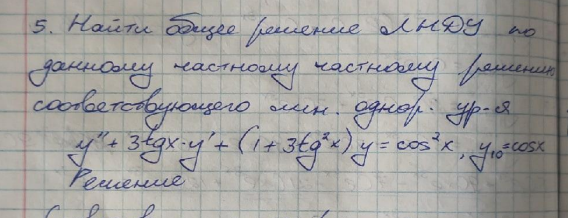 5. Найти общее решение ЛНДУ по
данному частному частному решению
соответствующего лин. однор. ур-я
y'' + 3tgx·y' + (1+3tg²x)y = cos²x, y₁₀=cosx
Решение